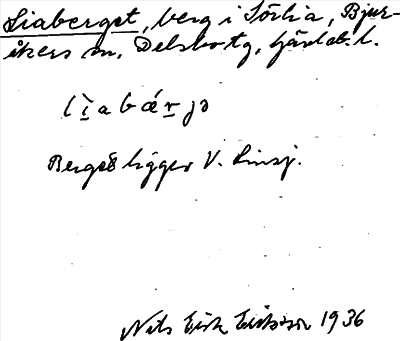 Liaberget, berg i Sörlia, Bjur-
åkers sn, Delsbo tg, Gävleb. l.
lìabǽrjə
Berget ligger V.
Nils Erik Eriksson 1936